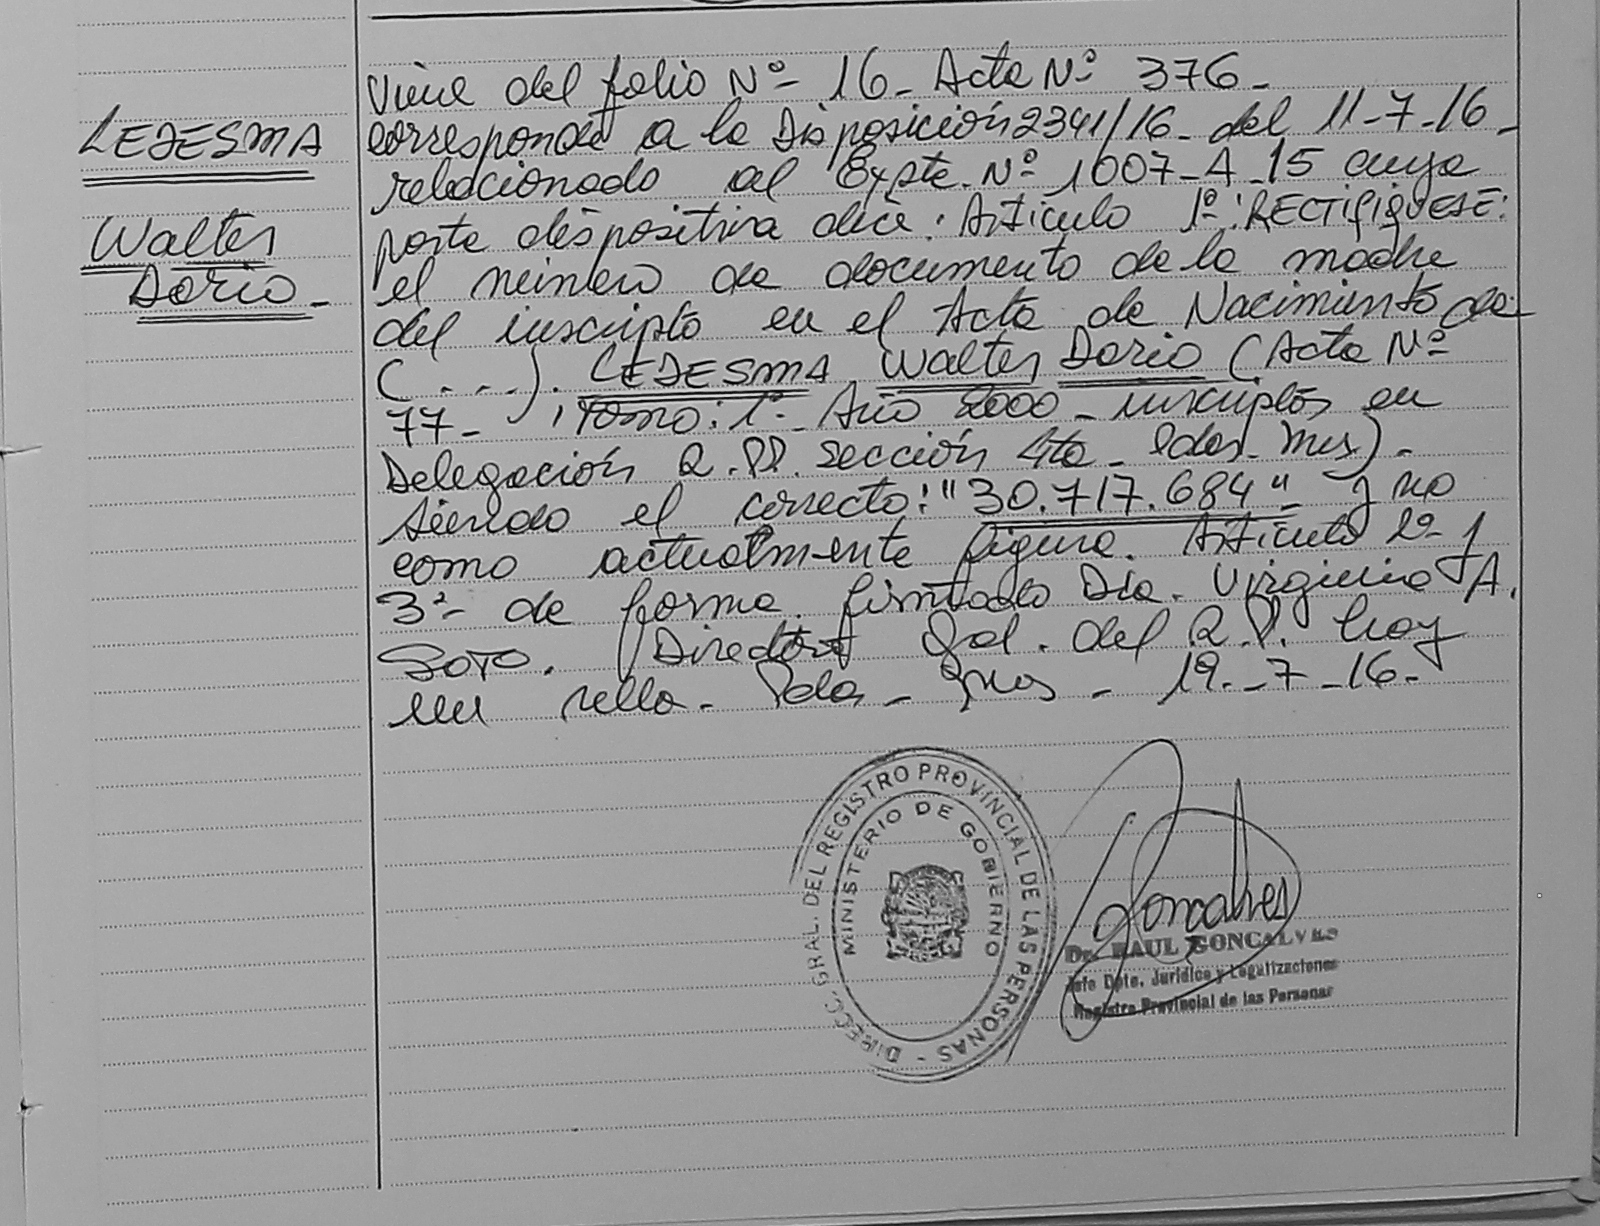 LEDESMA
Walter
Dario-
Viene del folio Nº- 16- Acta Nº 376-
corresponde a la Disposición 2341/16- del 11-7-16-
relacionado al Expte. Nº 1007-A-15 cuya
parte dispositiva dice: Artículo 1º: RECTIFIQUESE:
el número de documento de la madre
del inscripto en el Acta de Nacimiento de:
(....). LEDESMA Walter Dario (Acta Nº
77- , Tomo: 1º- Año 2000- inscriptos en
Delegación R.PP. sección 4ta- Pdas- Mnes)-
siendo el correcto: "30.717.684" y no
como actualmente figura. Artículo 2º- y
3º- de forma. firmado Dra. Virginia A.
SOTO. Directora Gral. del R.P. hoy
un sello- Pdas- Mnes- 19-7-16-
DIRECC. GRAL. DEL REGISTRO PROVINCIAL DE LAS PERSONAS -
MINISTERIO DE GOBIERNO
Goncalves
Dr. RAUL GONCALVES
Jefe Dpto. Jurídico y Legalizaciones
Registro Provincial de las Personas